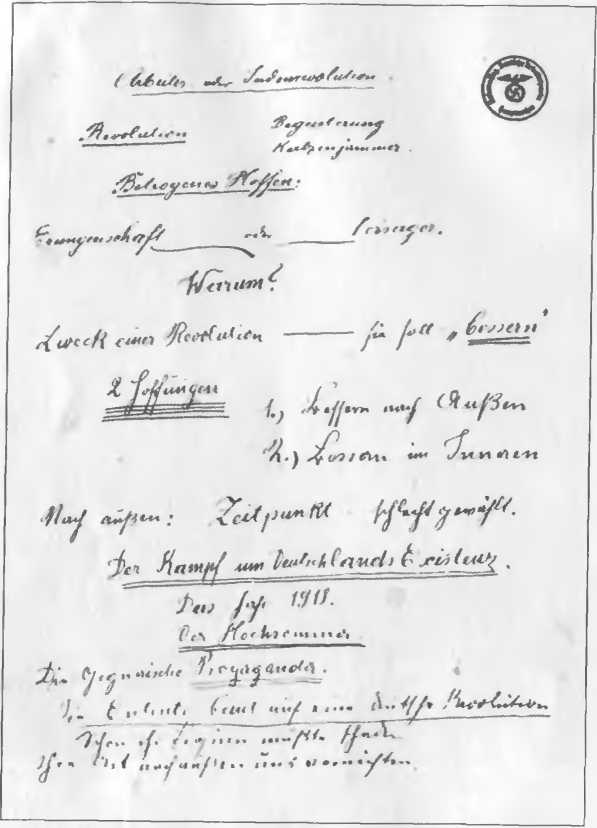 Arbeiter oder Judenrevolution.
Revolution Begeisterung
Katzenjammer.
Betrogenes Hoffen:
Errungenschaft oder Versager.
Warum?
Zweck einer Revolution — sie soll „bessern“
2 Hoffnungen
1.) Bessern nach Außen
2.) Bessern im Inneren
Nach außen: Zeitpunkt schlecht gewählt.
Der Kampf um Deutschlands Existenz.
Das Jahr 1918.
Der Hochsommer
Die gegnerische Propaganda.
Die Entente baut auf eine deutsche Revolution
Schon ihr Beginn mußte schaden
Ihre Art nach außen uns vernichten.